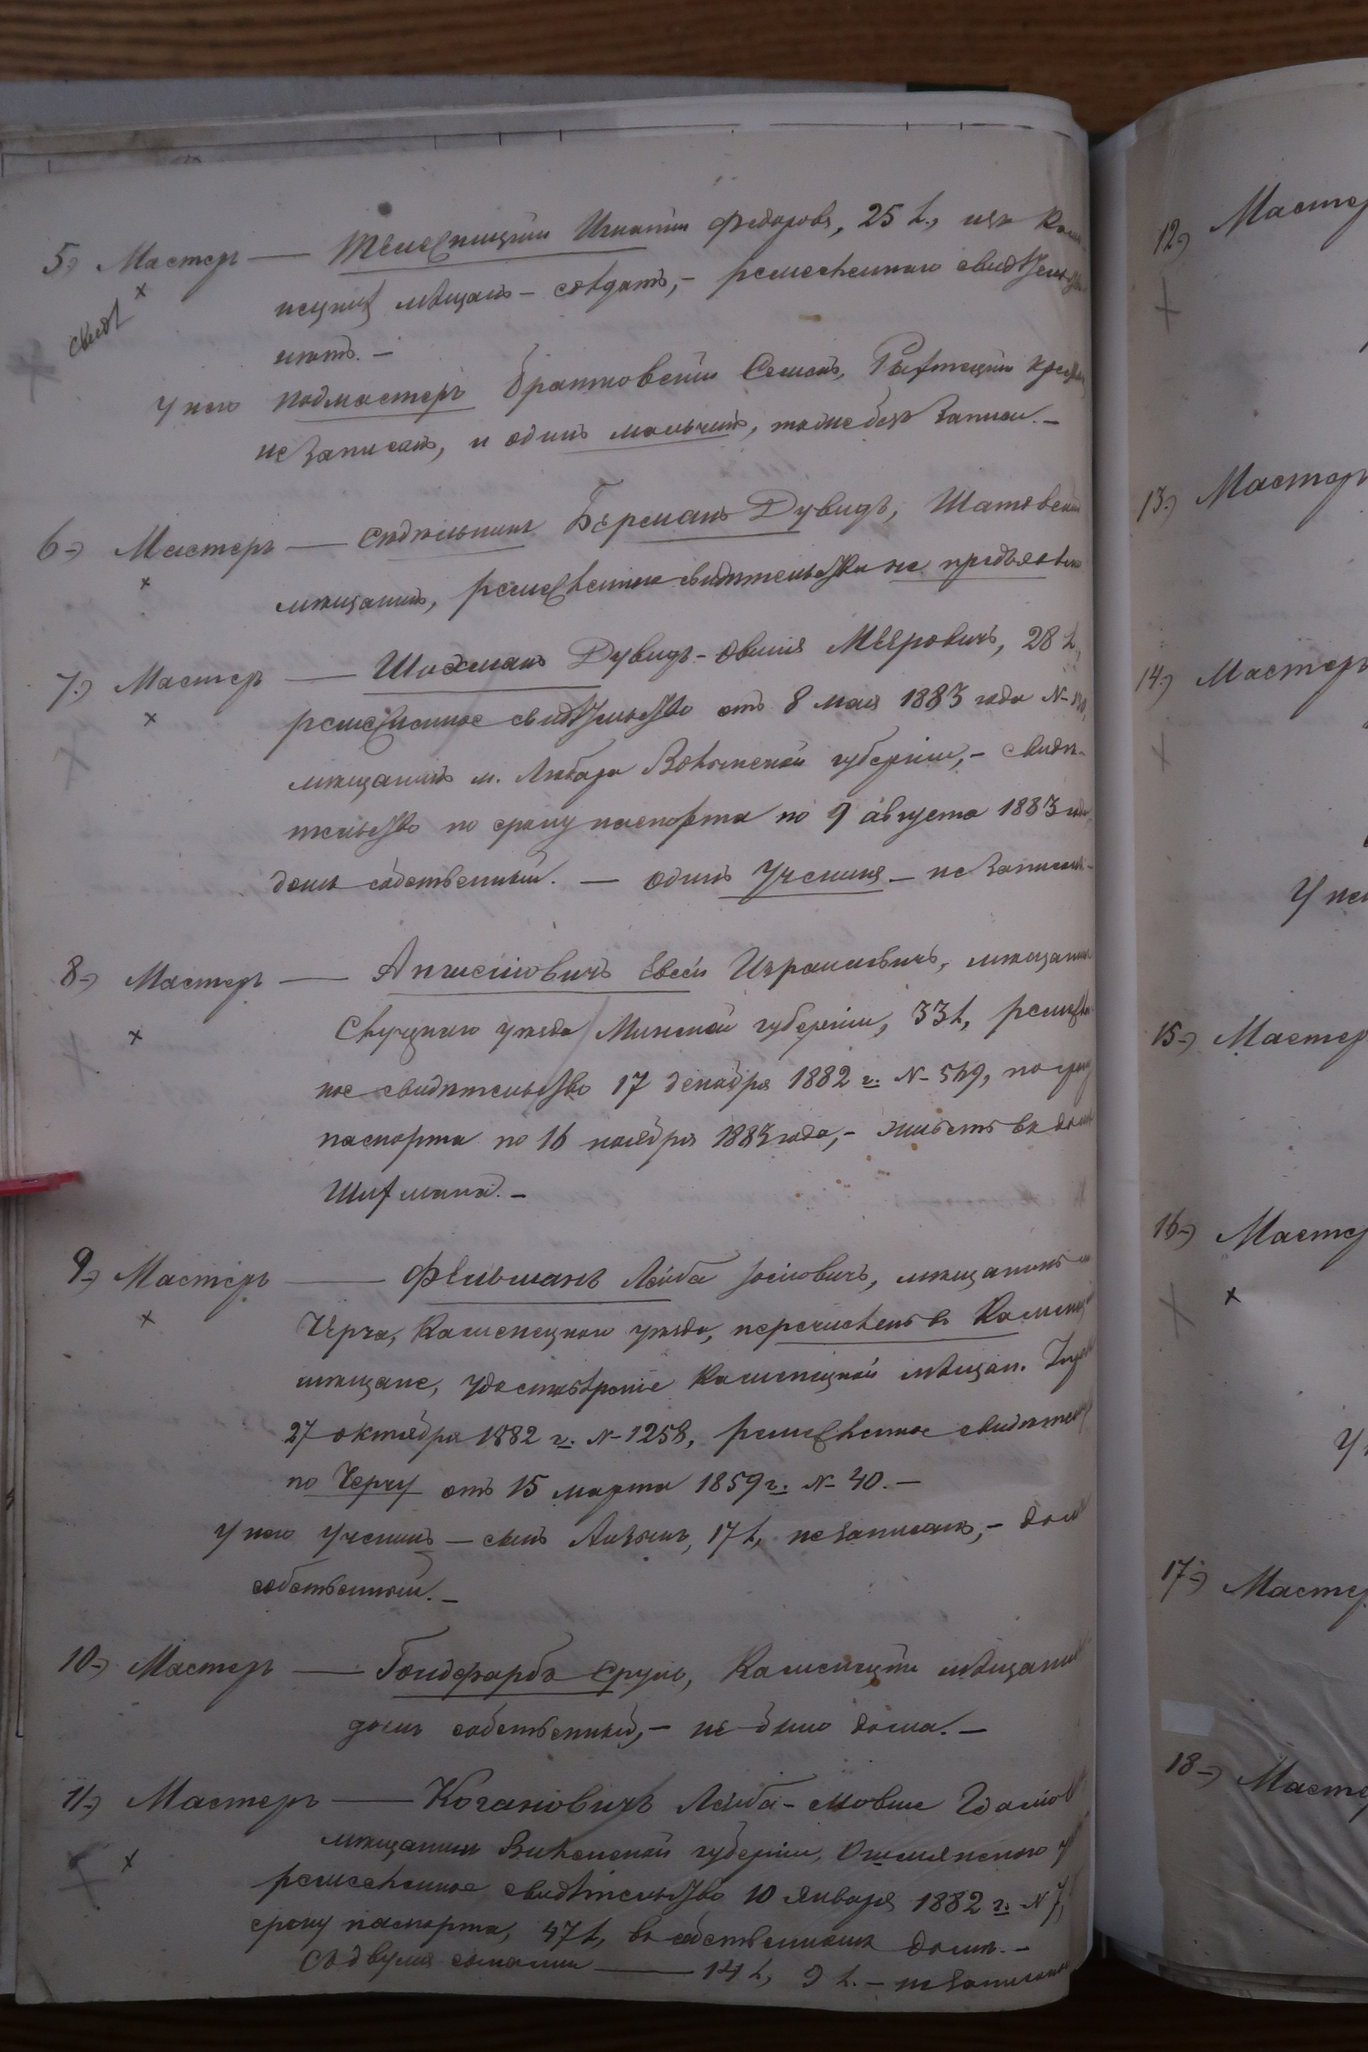 5) Мастеръ — Игнатій Федоровъ, 25 л., изъ
мѣщанъ – солдатъ, – ремесленного
свид.
нѣтъ. –
У него подмастеръ Братковскій Семенъ,
не записанъ, и одинъ мальчикъ, тоже безъ записи. –
6) Мастеръ — сѣдельникъ Берманъ Дувидъ, Шатавскій
мѣщанинъ, ремесленного свидѣтельства не предъявилъ
7.) Мастеръ — Шахманъ Дувидъ-Овшія Мееровичъ, 28 л.,
ремесленное свидѣтельство отъ 8 мая 1883 года №
мѣщанинъ м. Любара Волынской губерніи, – свидѣ-
тельство по сроку паспорта по 9 августа 1883 года
домъ собственный. — одинъ ученикъ – не записанъ
8) Мастеръ — Евсей Израилевичъ, мѣщанинъ
Слуцкаго уѣзда Минской губерніи, 33 л., ремеслен-
ное свидѣтельство 17 декабря 1882 г. № 549, по сроку
паспорта по 16 ноября 1883 года, – живетъ въ домѣ
Шифмана. –
9) Мастеръ — Фельманъ Лейба Іосіовичъ, мѣщанинъ
Черча, Каменецкаго уѣзда, перечисленъ въ Каменец
мѣщане, удостовѣреніе Каменецкой мѣщан.
27 октября 1882 г. № 1258, ремесленное свидѣтел
по Черчу отъ 15 марта 1859 г. № 40. –
У него ученикъ – сынъ 17 л., не записанъ, – домъ
собственный. –
10) Мастеръ — Голдфарбъ Сруль, Каменецкій мѣщанинъ
домъ собственный, – не было дома. –
11) Мастеръ — Когановичъ Лейба-Мовше
мѣщанинъ Виленской губерніи, Ошмянского у
ремесленное свидѣтельство 10 января 1882 г. № 7,
сроку паспорта, 47 л., въ собственномъ домѣ. –
Съ двумя сынами — 14 л., 9 л. – не записаны
12)
Мастер
13.) Мастеръ
14.) Мастеръ
У не
15) Мастер
16) Мастер
У
17) Мастер
18) Масте